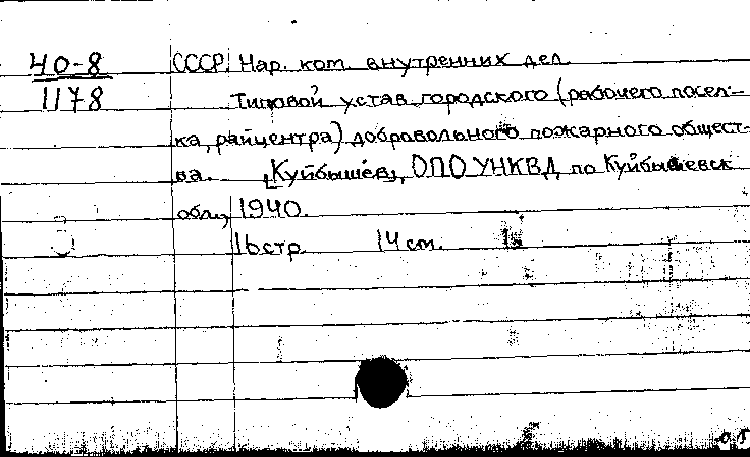 40-8 СССР. Нар. ком. внутренних дел.
1178 Типовой устав городского (рабочего посел-
ка, райцентра) добровольного пожарного общест-
ва. [Куйбышев], ОПО УНКВД по Куйбышевск.
обл., 1940.
16 стр. 14 см.